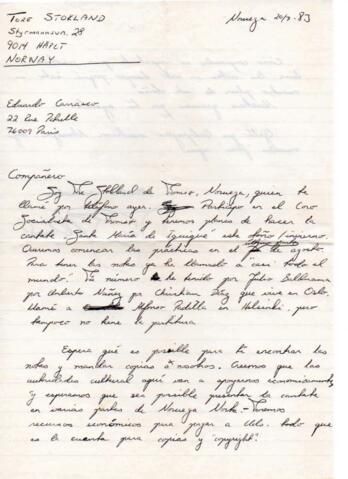 TORE STORLAND
Styrmannsvn. 28
9014 HÅPET
NORWAY
Noruega 20/7 - 83
Eduardo Carrasco
22 Rue
Paris
Compañero
Soy Tore Storland de Tromsø, Noruega, quien te
llamó por teléfono ayer. Participo en el Coro
Socialista de Tromsø y tenemos planes de hacer la
cantate Santa María de Iquique este invierno.
Queremos comenzar las prácticas en el de agosto.
Para tener las notas ya he llamado a "casi todo el
mundo". Tu número he tenido por Julio
por Núñez por que vive en Oslo,
Llamé a Padilla en Helsinki, pero
tampoco no tiene la partitura
Espera qué es posible para ti encontrar las
notas y mandar copias a nosotros. Creemos que las
autoridades cultural aquí van a apoyarnos económicamente
y esperamos que será posible presentar la cantate
en varias partes de Noruega Norte. - Tenemos
recursos económicos para pagar a Uds. todo que
es la cuenta para copias y "copyright".